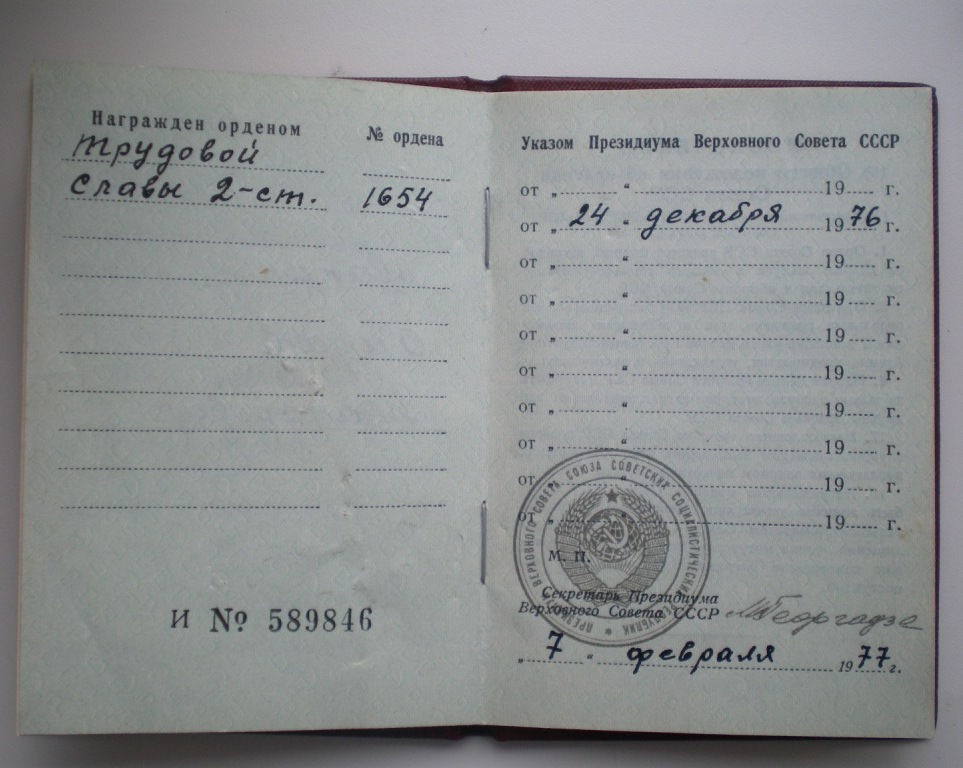 Награжден орденом
№ ордена
Трудовой
Славы 2-ст. 1654
И № 589846
Указом Президиума Верховного Совета СССР
от „ “ 19 г.
от „ 24 “ декабря 1976 г.
от „ “ 19 г.
от „ “ 19 г.
от „ “ 19 г.
от „ “ 19 г.
от „ “ 19 г.
от „ “ 19 г.
от „ “ 19 г.
от „ “ 19 г.
ПРЕЗИДИУМ ВЕРХОВНОГО СОВЕТА СОЮЗА СОВЕТСКИХ СОЦИАЛИСТИЧЕСКИХ РЕСПУБЛИК
М. П.
Секретарь Президиума
Верховного Совета СССР
МГеоргадзе
„ 7 “ февраля 1977 г.